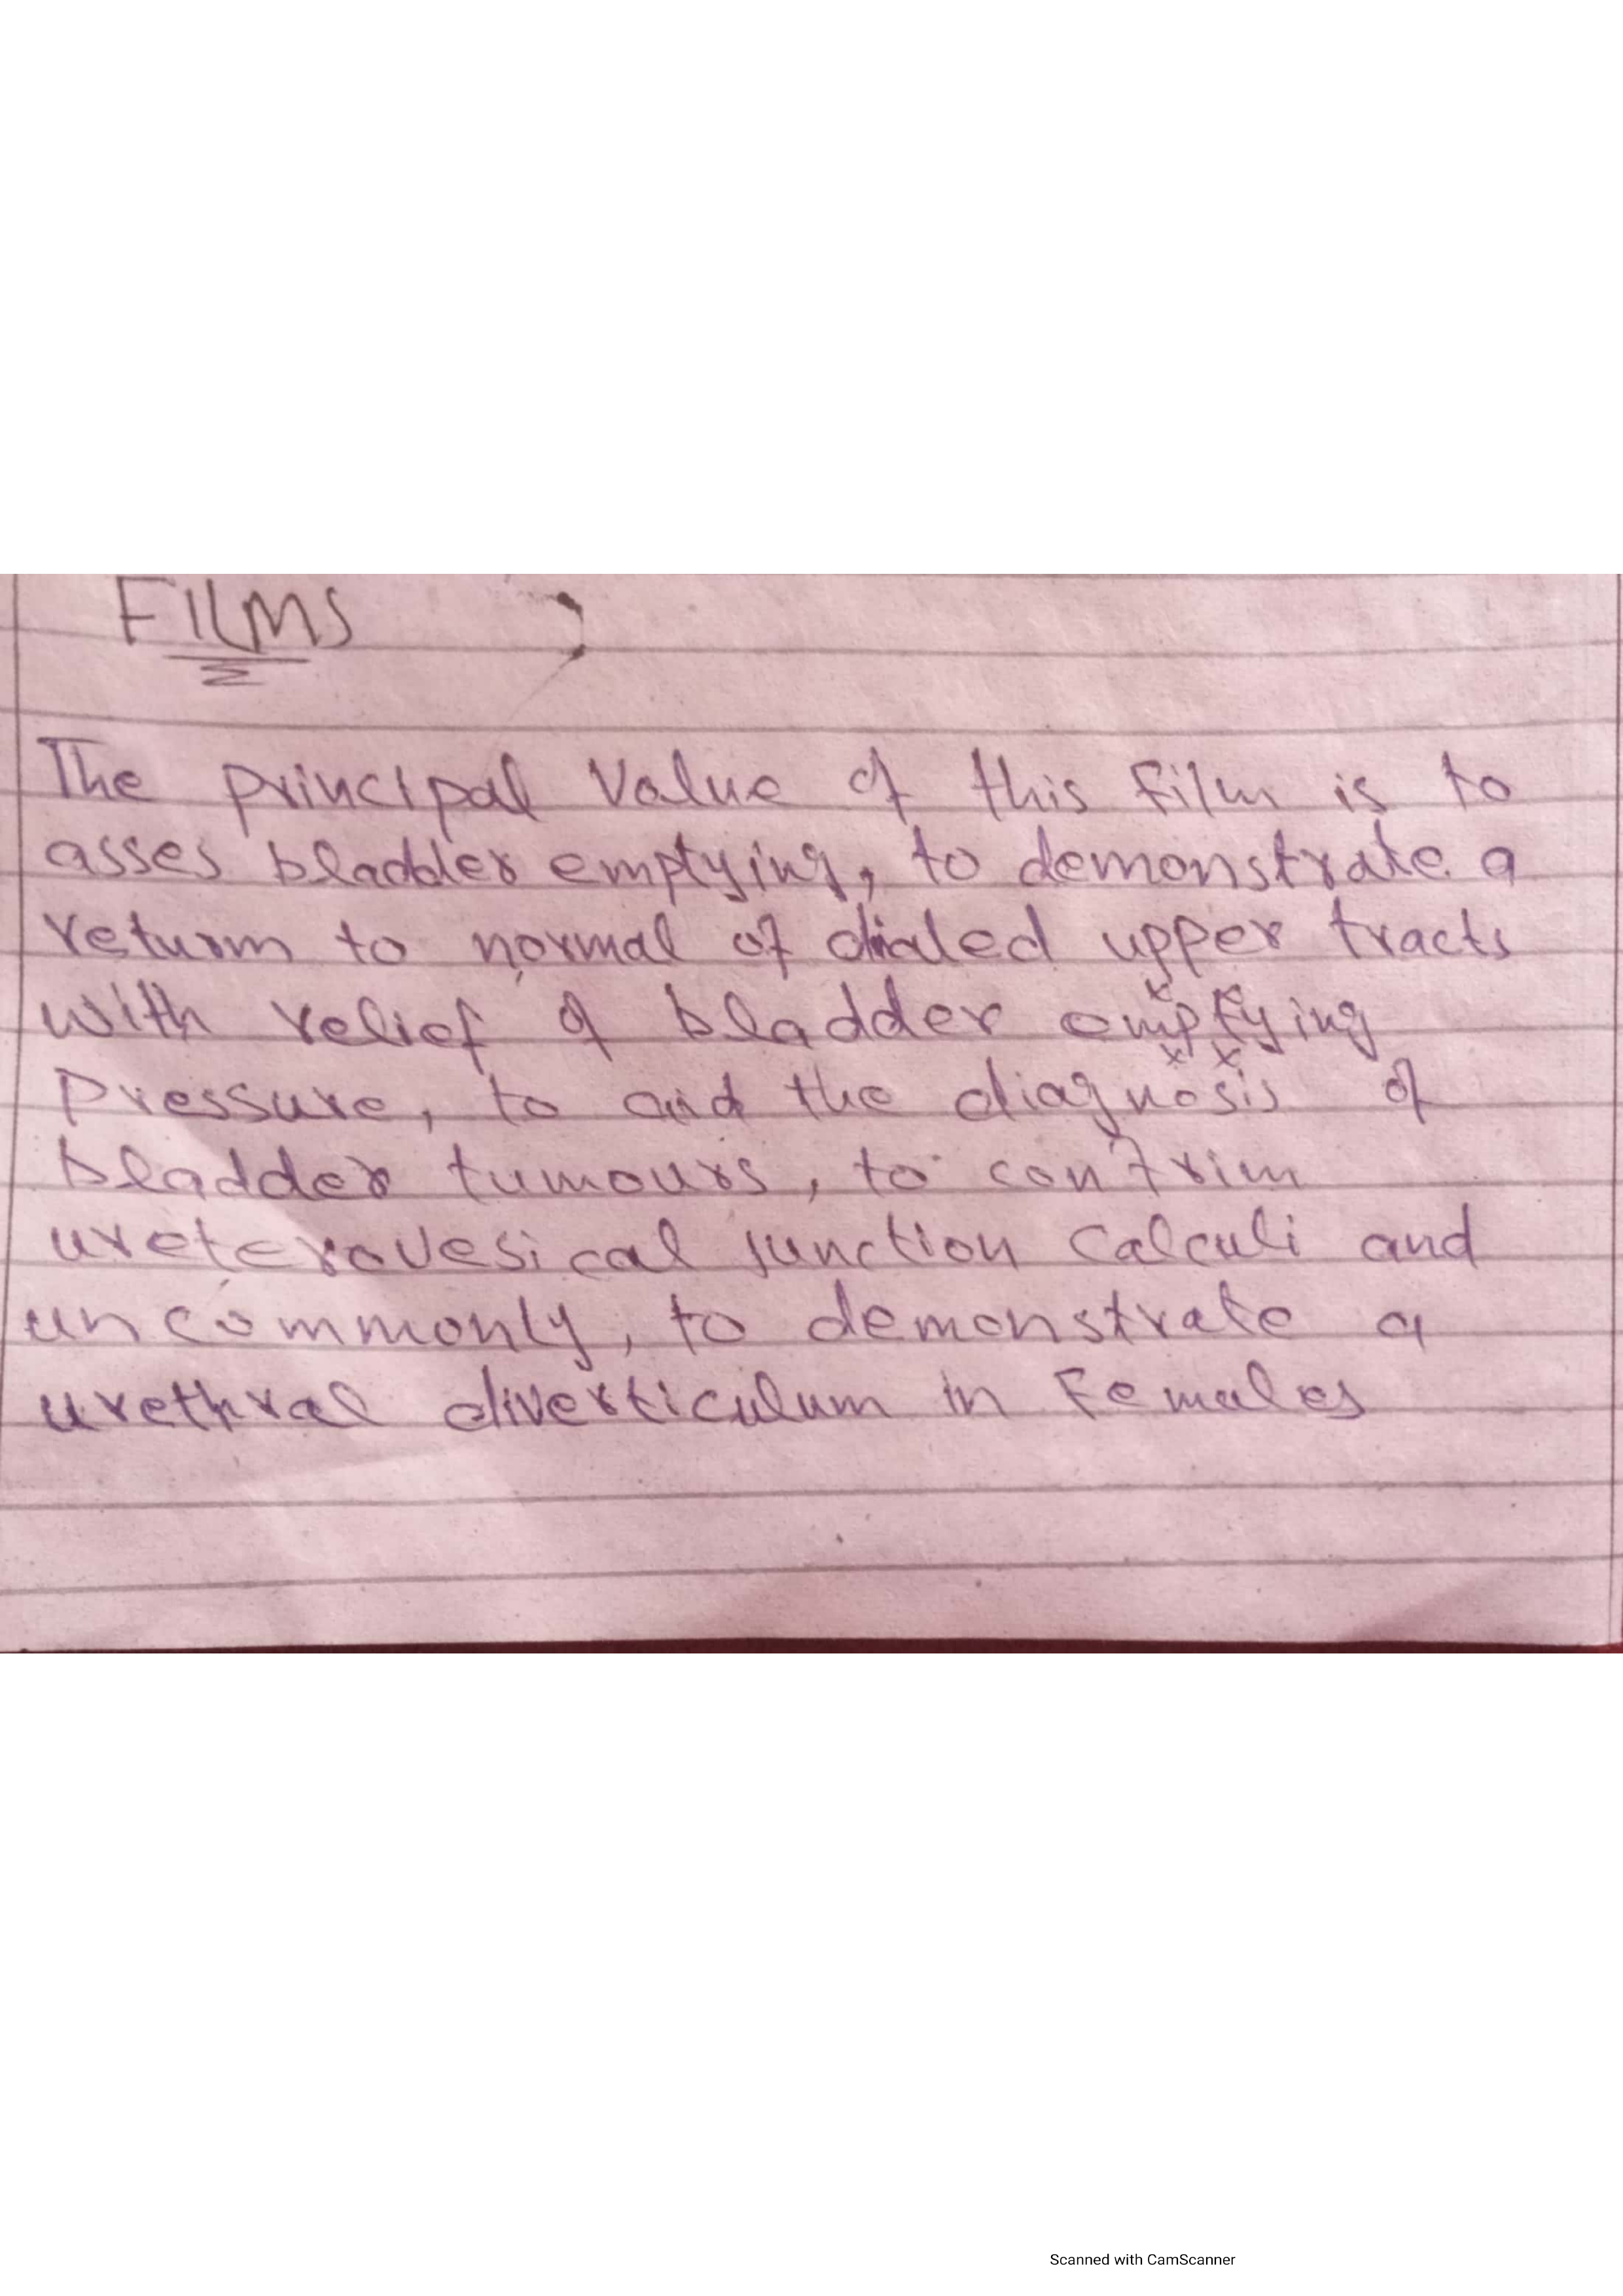 FILMS
The principal value of this film is to
asses bladder emptying, to demonstrate a
return to normal of dialed upper tracts
with relief of bladder emptying
Pressure, to aid the diagnosis of
bladder tumours, to confrim
ureterovesical junction calculi and
uncommonly, to demonstrate a
urethral diverticulum in Females
Scanned with CamScanner